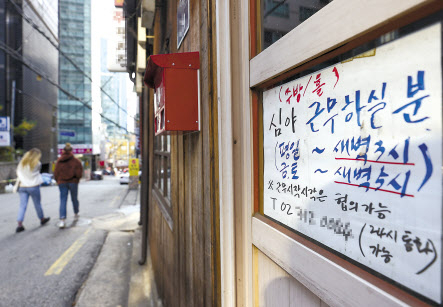 (주방/홀)
심야 근무하실 분
(평일 ~ 새벽 3시
금토 ~ 새벽 5시)
※ 근무시작시간은 협의가능
T 02
(24시 통화
가능)